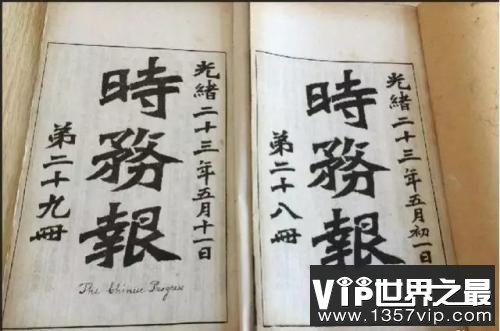 光緒二十三年五月十一日
時務報
第二十九冊
The Chinese Progress
光緒二十三年五月初一日
時務報
第二十八冊
VIP世界之最
www.1357vip.com